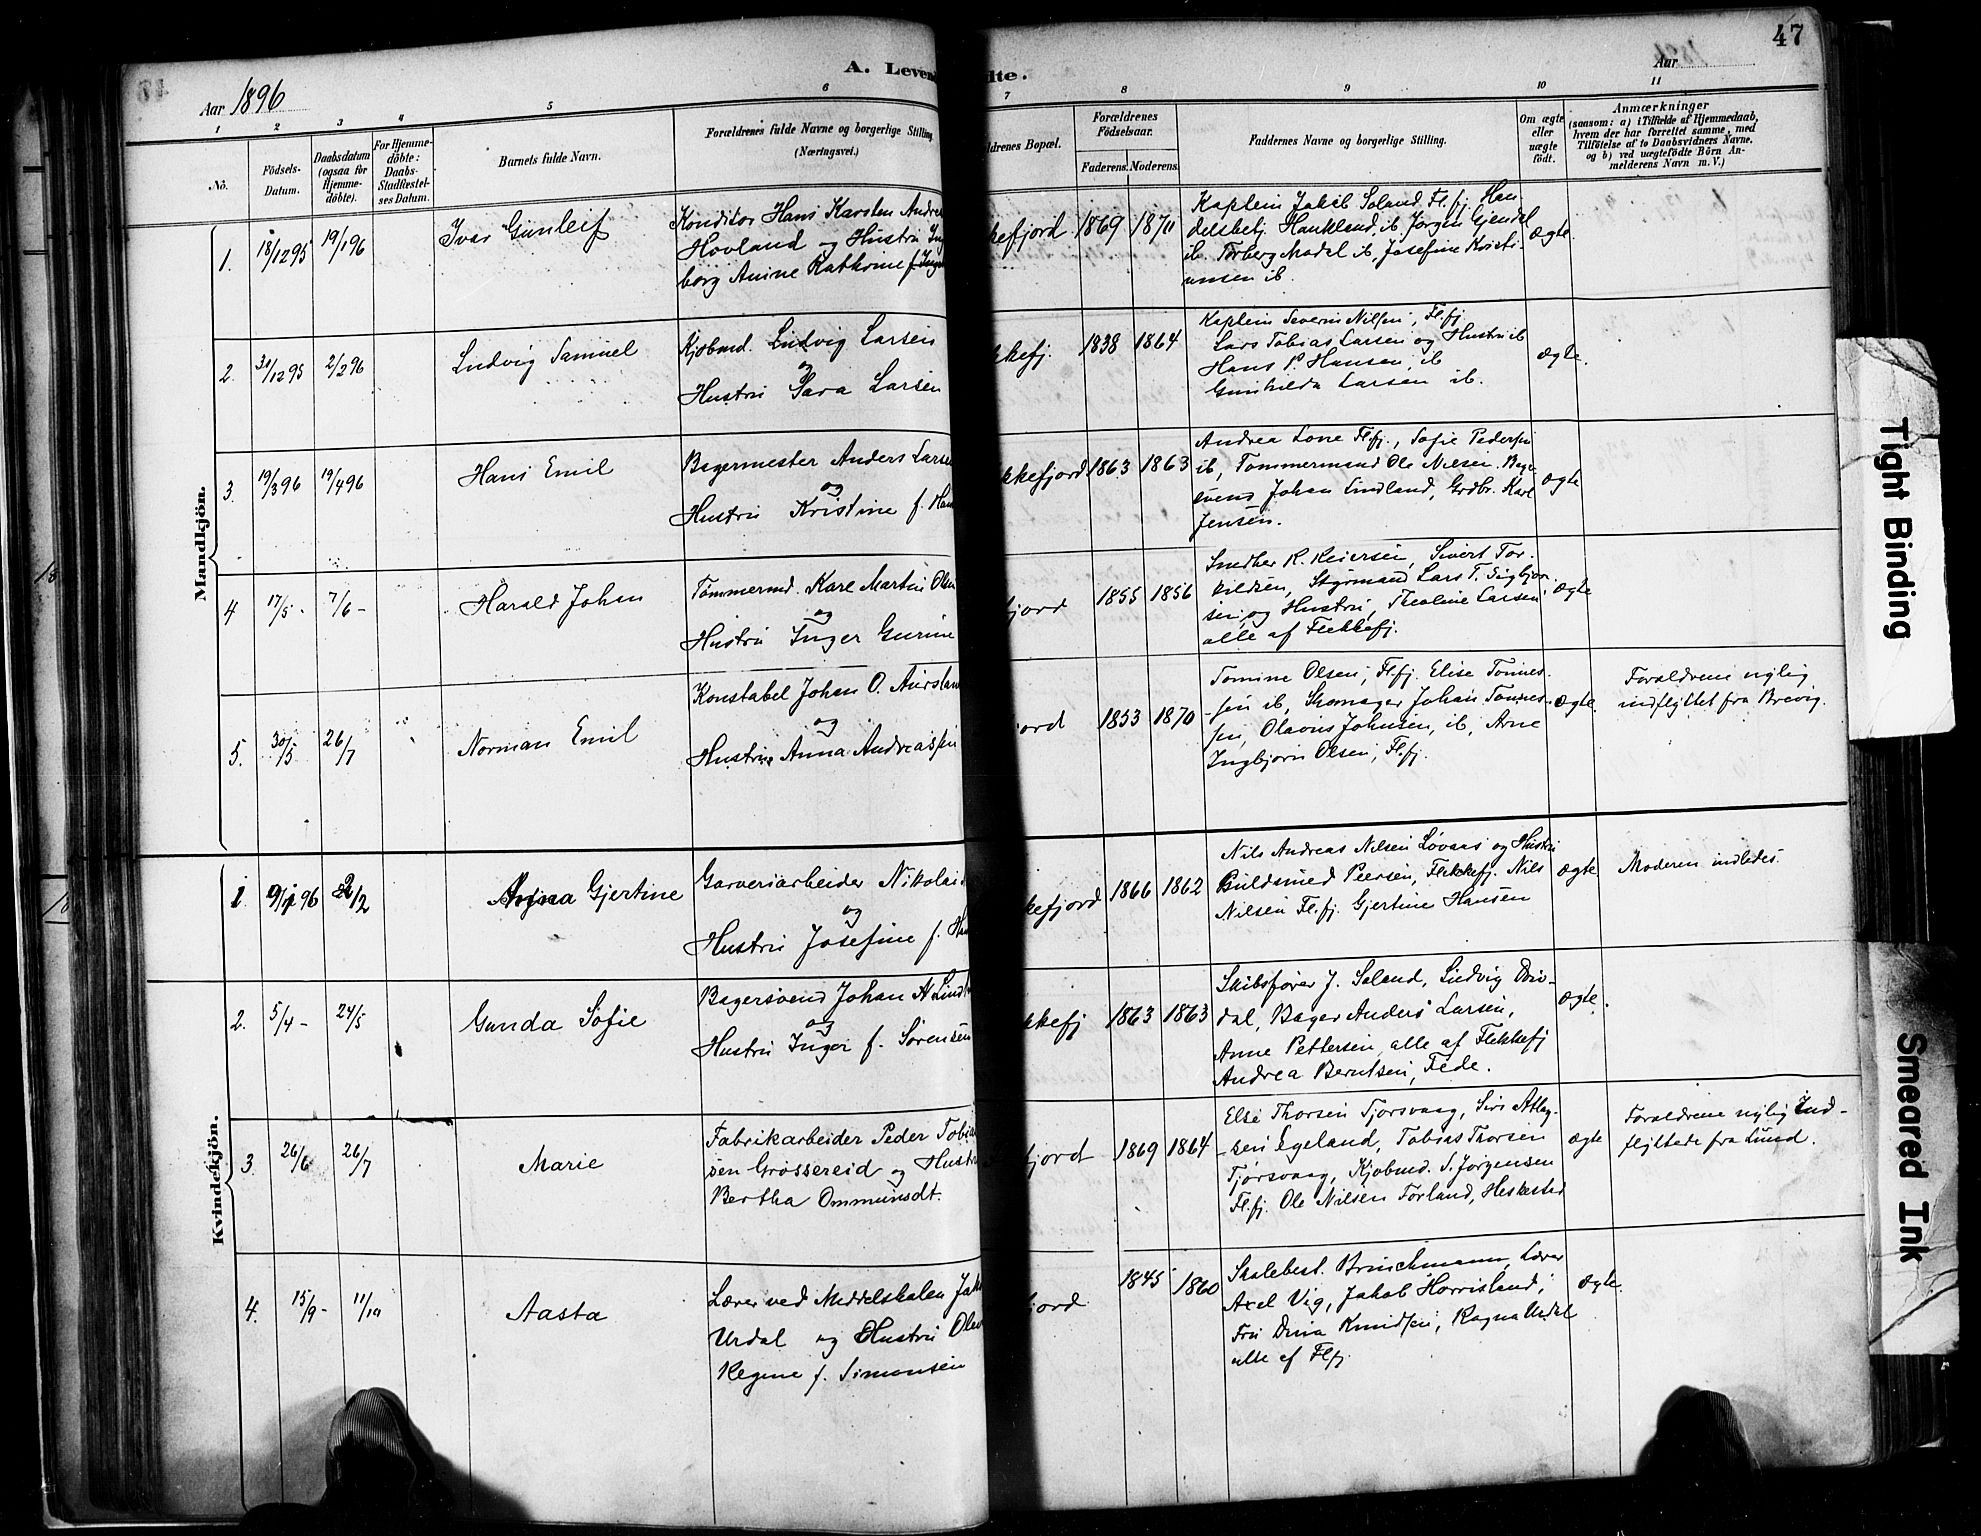 47
A. Leven
dte.
Aar 1896
Aar
1 2 3 4 5 6 7 8 9 10 11
No.
Födsels-
Datum.
Daabsdatum
(ogsaa for
Hjemme-
döbte).
For Hjemme-
döbte:
Daabs-
Stadfæstel-
ses Datum.
Barnets fulde Navn.
Forældrenes fulde Navne og borgerlige Stilling
(Næringsvei.)
ldrenes Bopæl.
Forældrenes
Födselsaar.
Faderens. Moderens.
Faddernes Navne og borgerlige Stilling.
Om ægte
eller
uægte
födt.
Anmærkninger
(saasom: a) i Tilfælde af Hjemmedaab,
hvem der har forrettet samme, med
Tilföielse af to Daabsvidners Navne,
og b) ved uægtefödte Börn An-
melderens Navn m. V.)
Mandkjön.
1. 18/12 95 19/1 96
Ivar Gunleif
Konditor Hans Karsten Andre
Hovland og Hustru Ing
borg Anine Kathrine f.
kefjord 1869 1870
Kaptein Jakob Soland Fl.fj. Han
delsbetj. Haukland, ib. Jørgen Gjendal
ib. Torberg Modal ib, Josefine Kristi-
ansen ib.
ægte.
2. 30/12 95 2/2 96
Ludvig Samuel
Kjöbmd. Ludvig Larsen
og
Hustru Sara Larsen
kkefj. 1838 1864
Kaptein Severin Nilsen, Fl.fj.
Lars Tobias Larsen og Hustru ib
Hans P. Hansen, ib
Gunhilda Larsen ib.
ægte.
3. 19/3 96 19/4 96
Hans Emil
Bagermester Anders Larse
og
Hustru Kristine f. Han
kkefjord 1863 1863
Andrea Lone Fl.fj., Sofie Pedersen
ib, Tømmermand Ole Nilsen. Bager
svend Johan Lindland, Grdbr. Karl
Jensen.
ægte
4 17/5 - 7/6 -
Harald Johan
Tømmermd. Karl Martin Olsen
og
Hustru Inger Gurine
jord 1855 1856
Snedker R. Reiersen, Sivert Tor-
kildsen, Styrmand Lars T. Sigbjørn-
sen og Hustru, Theoline Larsen
alle af Flekkefj.
ægte
5. 30/5 26/7
Norman Emil
Konstabel Johan O. Aursland
og
Hustru Anna Andreassen
jord 1853 1870
Tomine Olsen, Fl.fj. Elise Tønnes-
sen ib, Skomager Johan Tønnes-
sen, Olavus Johnsen, ib, Arne
Ingbjørn Olsen, Fl.fj.
ægte.
Forældrene nylig
indflyttet fra Brevig.
Kvindekjön.
1 9/1 96 2/2
Gjertine
Garveriarbeider Nikolai
og
Hustru Josefine f. Han
kefjord 1866 1862
Nils Andreas Nilsen Løvaas og Hustru
Guldsmed Peersen, Flekkefj. Nils
Nilsen Fl.fj. Gjertine Hansen
ægte
Moderen indledes.
2. 5/4 - 24/5
Gunda Sofie
Bagersvend Johan A Lindl
og
Hustru Inger f. Sørensen
kkefj 1863 1863
Skibsfører J. Soland, Ludvig Driv-
dal, Bager Anders Larsen,
Anne Pettersen alle af Flekkefj
Andrea Berntsen, Fede.
ægte.
3. 26/6 26/7
Marie
Fabrikarbeider Peder Tobia
sen Grøssereid og Hustru
Bertha Ommunsdt.
jord 1869 1864
Else Thorsen Tjorsvaag, Siri Atlag-
sen Egeland, Tobias Thorsen
Tjørsvaag, Kjøbmd. S. Jørgensen
Fl.fj. Ole Nilsen Forland, Heskestad
ægte
Forældrene nylig ind-
flyttede fra Lund.
4. 15/9 - 11/10
Aasta
Lærer ved Middelskolen Jak
Urdal og Hustru Olav
Regine f. Simonsen
jord 1845 1860
Skolebest. Brinchmann, Lærer
Axel Vig, Jakob Horrisland,
Fru Dina Knudsen, Ragna Urdal
alle af Flfj.
ægte.
Tight Binding
Smeared Ink